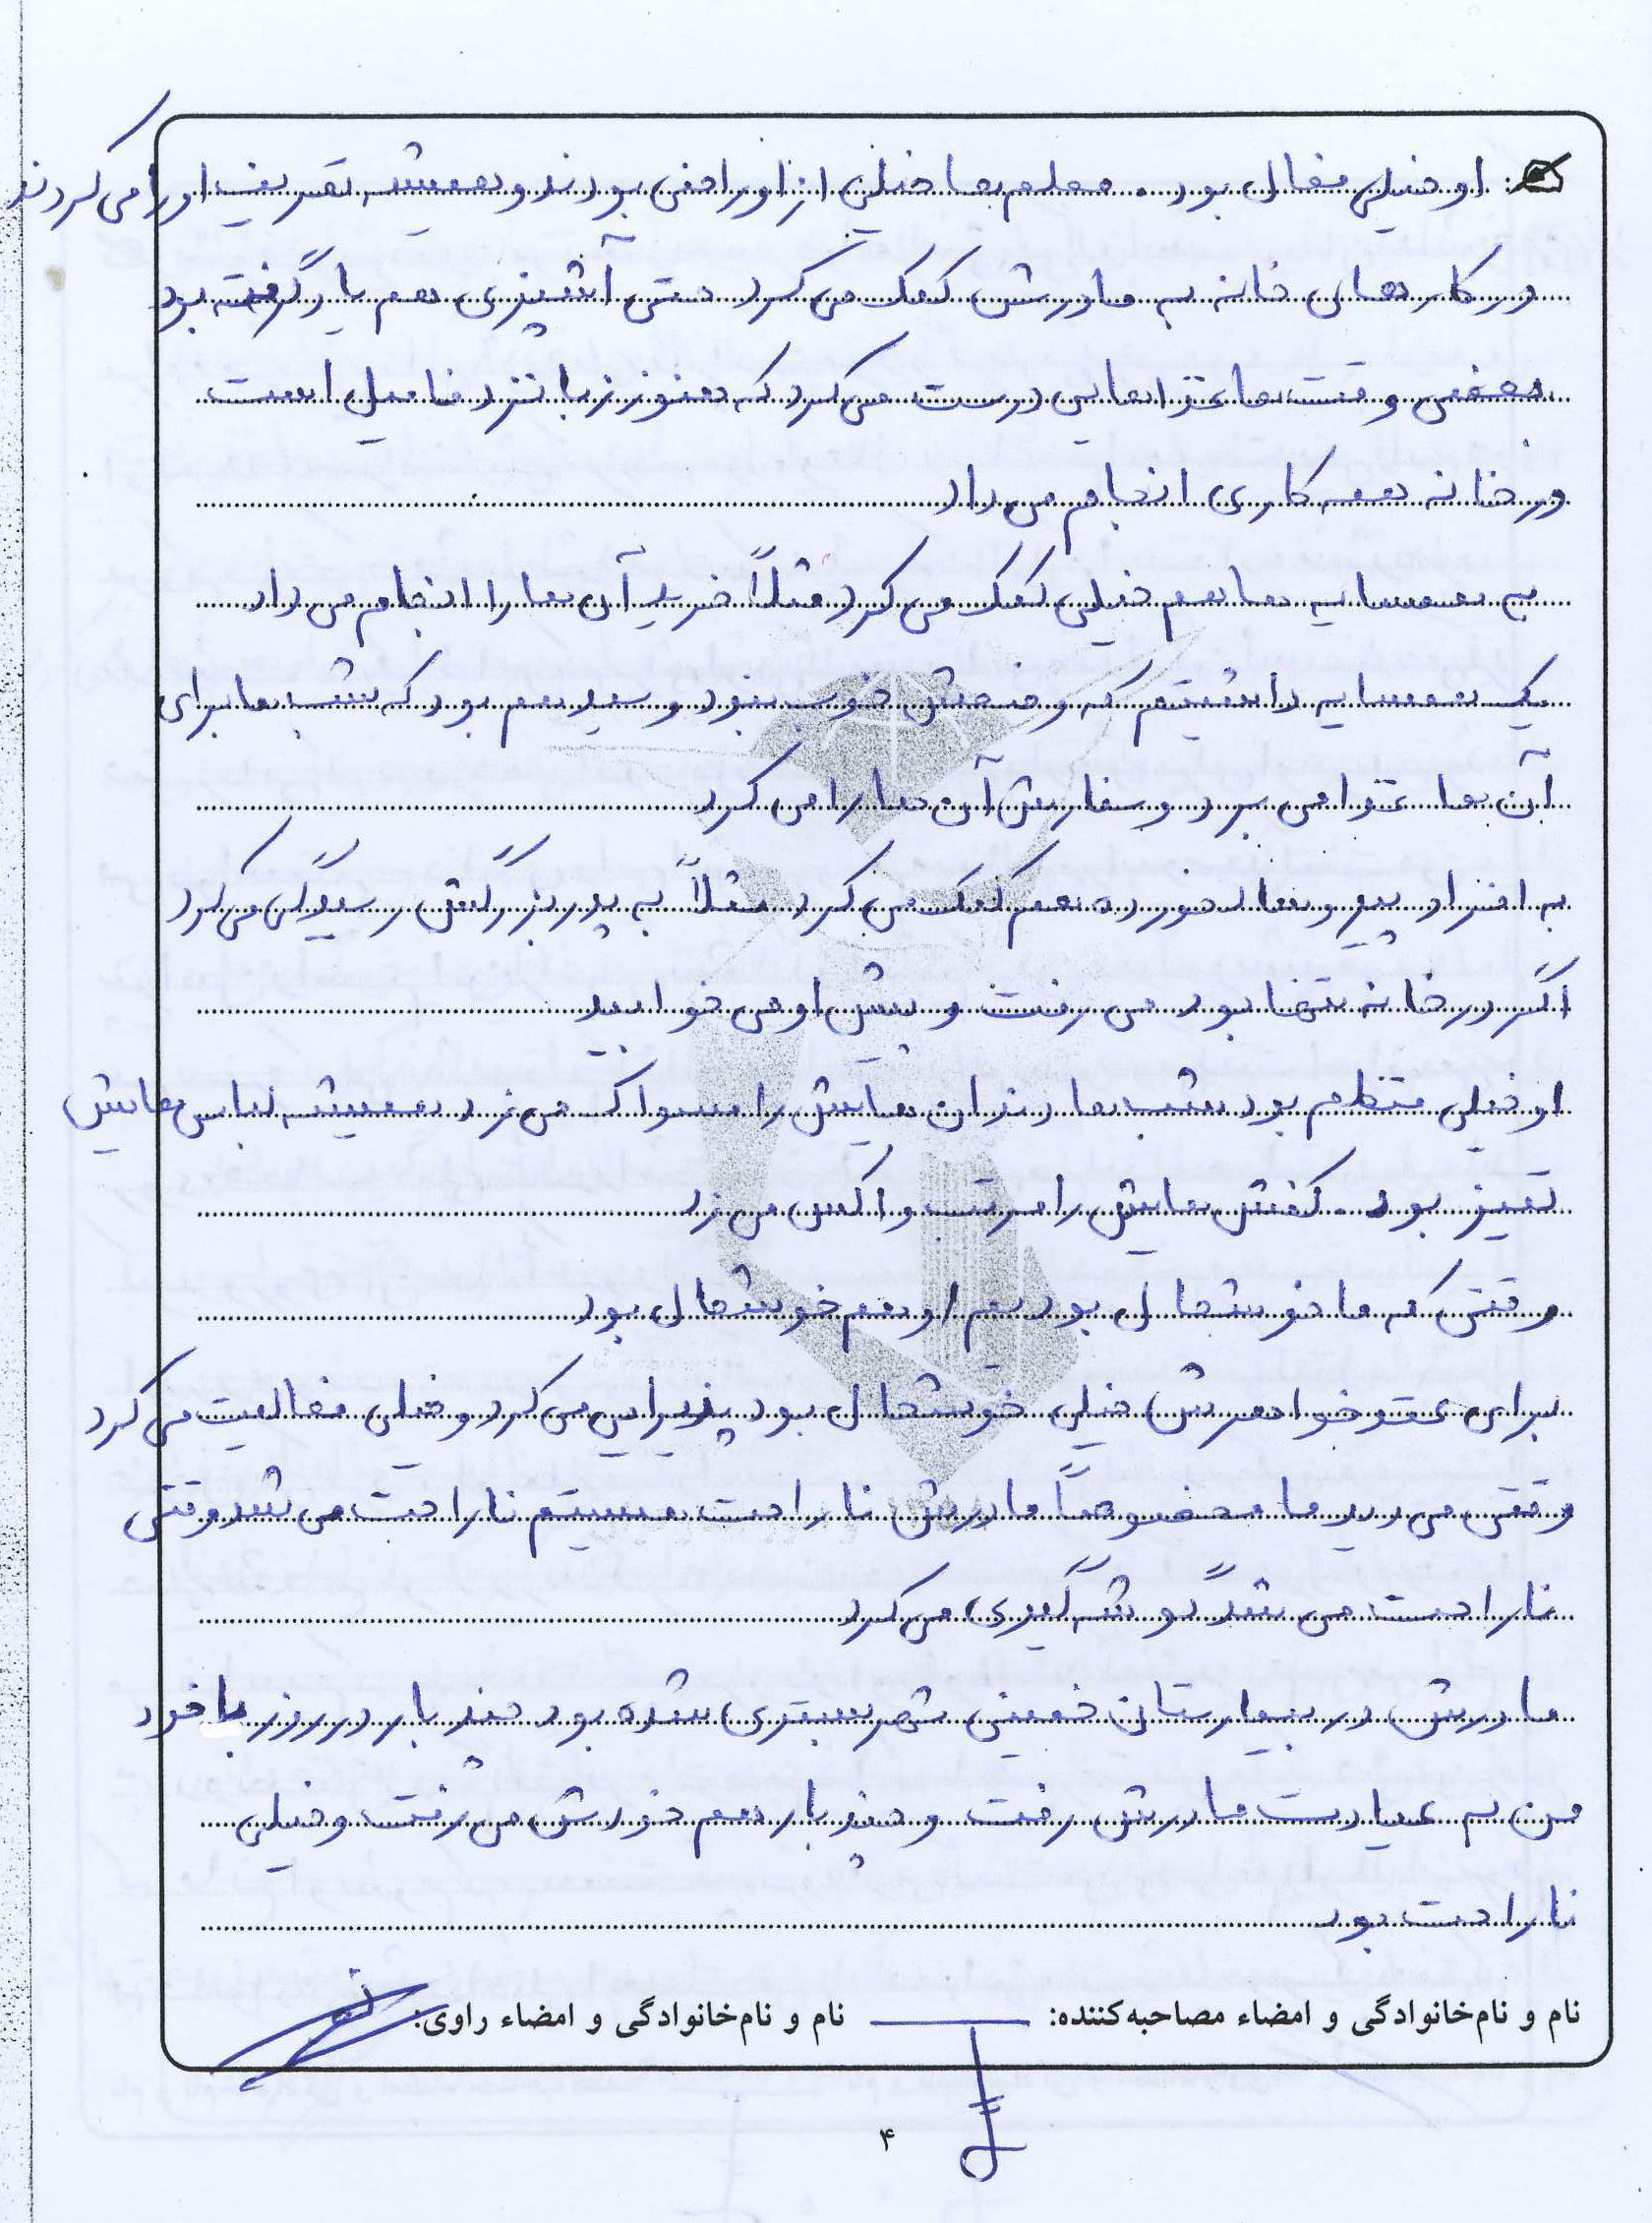 او خیلی فعال بود. معلم ها خیلی از او راضی بودند و همیشه تعریف او را می کردند
در کارهای خانه به مادرش کمک می کرد حتی آشپزی هم یاد گرفته بود
بعضی وقت ها غذاهایی درست می کرد که هنوز زبانزد فامیل است
در خانه همه کاری انجام می داد
به همسایه ها هم خیلی کمک می کرد مثلاً خرید آن ها را انجام می داد
یک همسایه داشتیم که وضعش خوب نبود و سید هم بود که شب ها برای
آن ها غذا می برد و سفارش آن ها را می کرد
به افراد پیر و سالخورده هم کمک می کرد مثلاً به پدربزرگش رسیدگی می کرد
اگر در خانه تنها بود می رفت و پیش او می خوابید
او خیلی منظم بود شب ها دندان هایش را مسواک می زد همیشه لباس هایش
تمیز بود. کفش هایش را مرتب واکس می زد
وقتی که ما خوشحال بودیم او هم خوشحال بود
برای عقد خواهرش خیلی خوشحال بود پذیرایی می کرد و خیلی فعالیت می کرد
وقتی می دید ما مخصوصاً مادرش ناراحت هستیم ناراحت می شد وقتی
ناراحت می شد گوشه گیری می کرد
مادرش در بیمارستان خمینی شهر بستری شده بود چند بار در روز با خود
من به عیادت مادرش رفت و چند بار هم خودش می رفت و خیلی
ناراحت بود
نام و نام‌خانوادگی و امضاء مصاحبه‌کننده: نام و نام‌خانوادگی و امضاء راوی:
۴